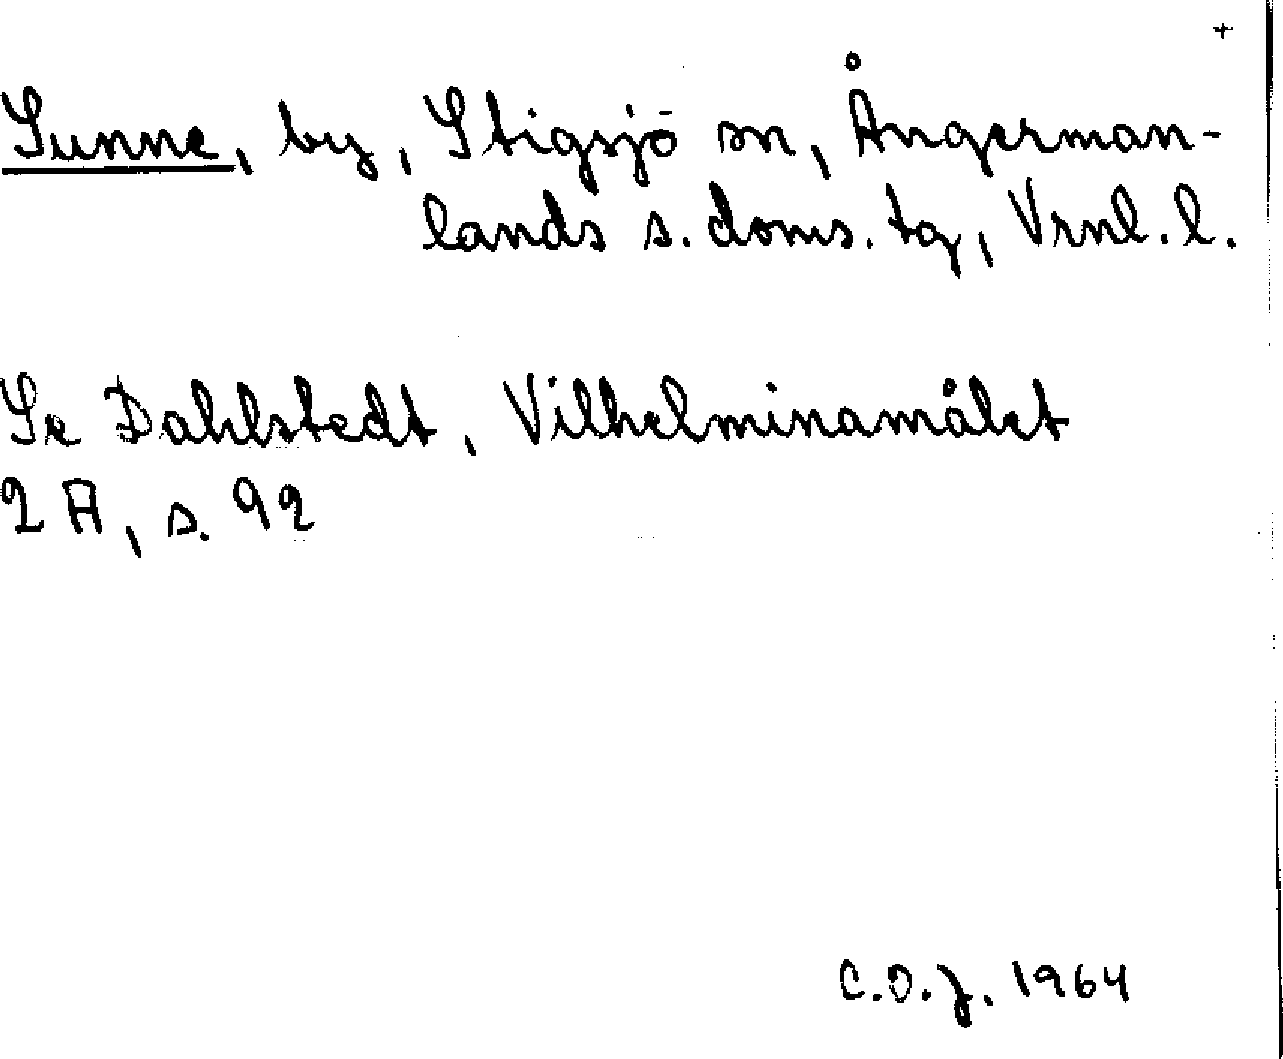 +
Sunne, by, Stigsjö sn, Ångerman-
lands s. doms. tg, Vrnl. l.
Se Dahlstedt, Vilhelminamålet
2 A, s. 92
C.O.J. 1964